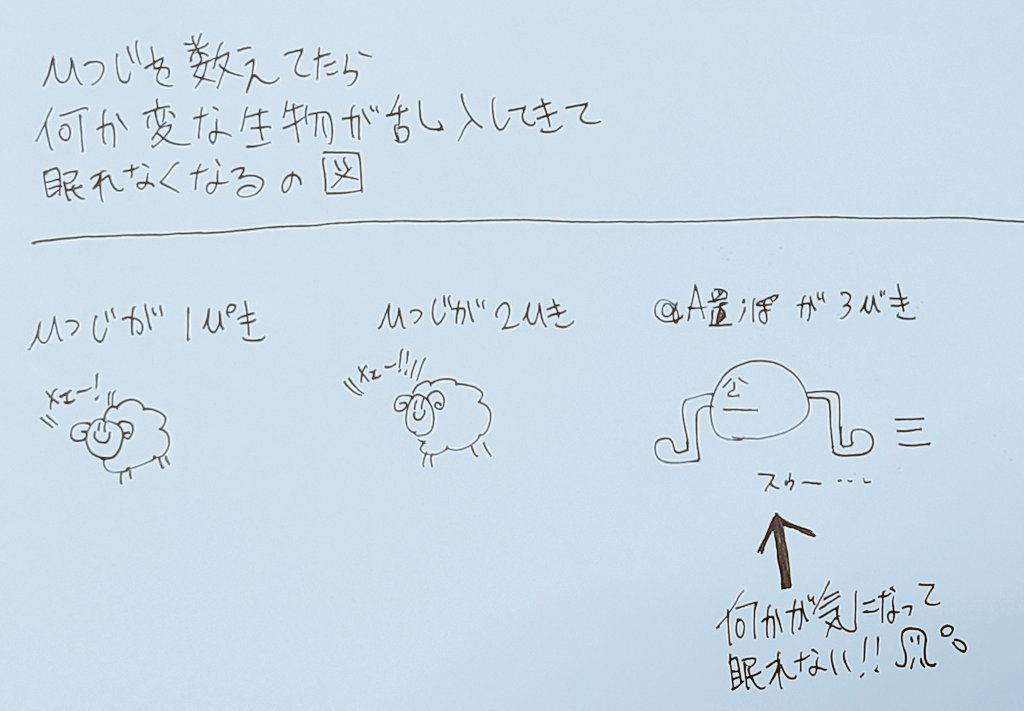 ひつじを数えてたら
何か変な生物が乱入してきて
眠れなくなるの図
ひつじが1ぴき
ひつじが2ひき
が3びき
メェー!
メェー!!
スゥー…
何かが気になって
眠れない!!